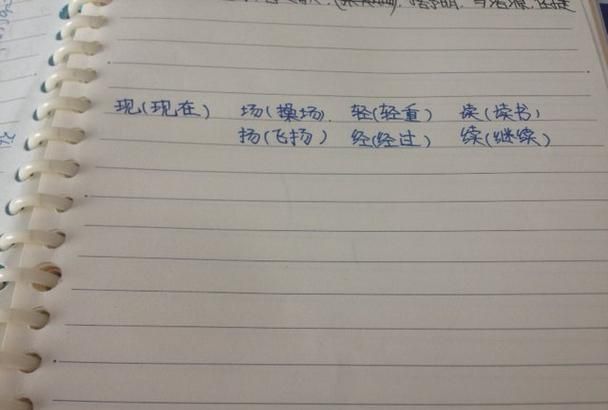 现(现在) 场(操场) 轻(轻重) 读(读书)
扬(飞扬) 经(经过) 续(继续)